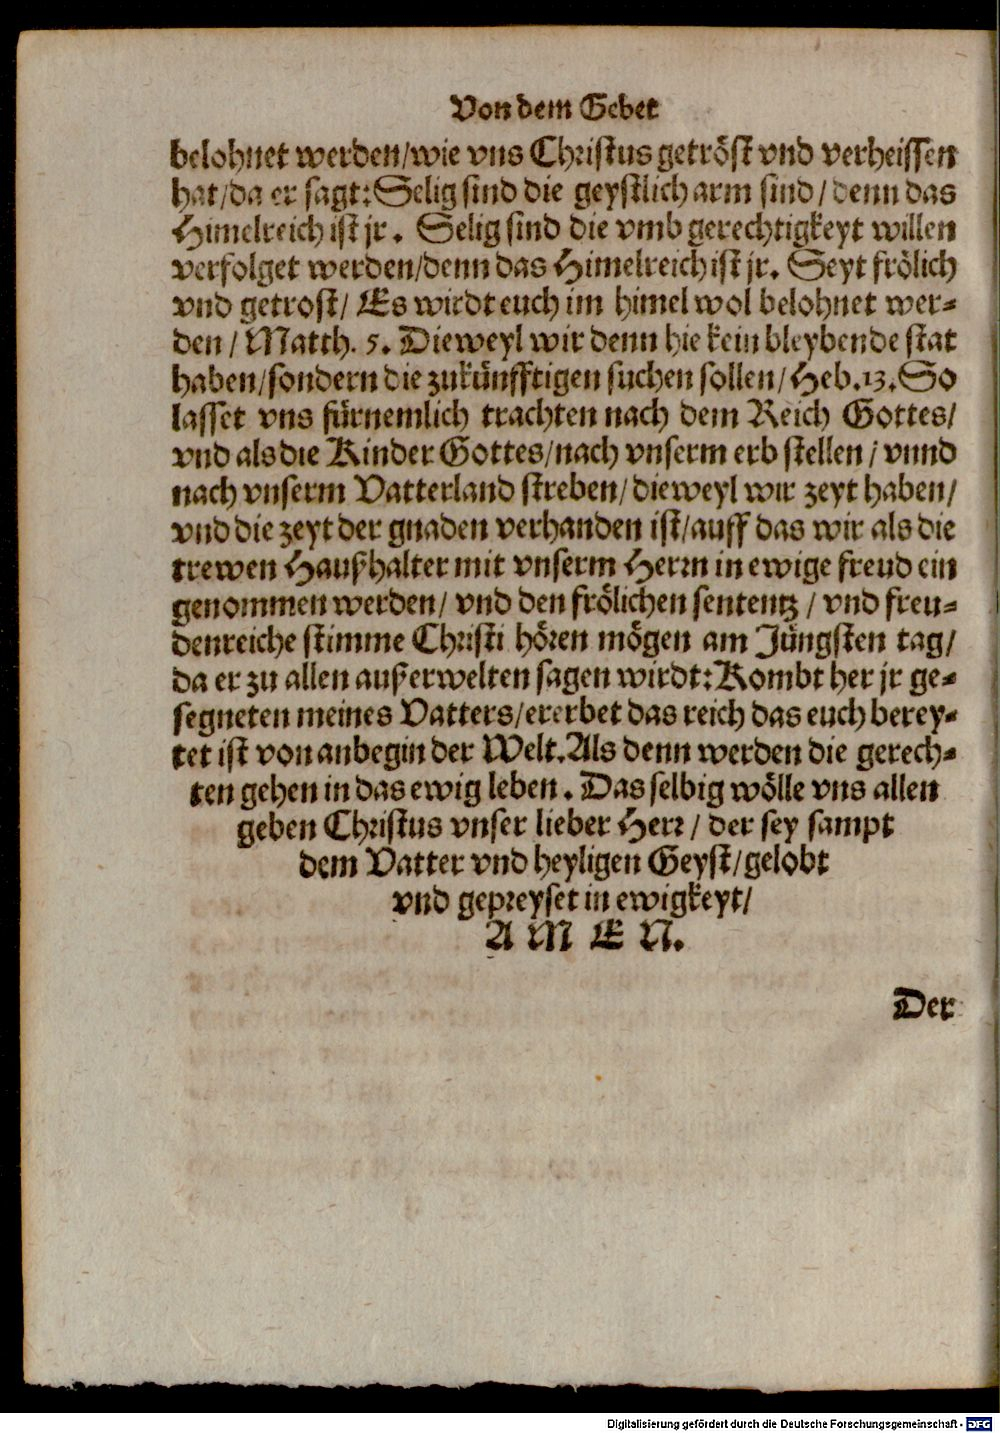 Von dem Gebet
belohnet werden/wie vns Christus getröst vnd verheissen
hat/da er sagt: Selig sind die geystlich arm sind/denn das
Himelreich ist jr. Selig sind die vmb gerechtigkeyt willen
verfolget werden/denn das Himelreich ist jr. Seyt frölich
vnd getrost/ Es wirdt euch im himel wol belohnet wer-
den/ Matth. 5. Dieweyl wir denn hie kein bleybende stat
haben/sondern die zukünfftigen suchen sollen/Heb.13. So
lasset vns fürnemlich trachten nach dem Reich Gottes/
vnd als die Kinder Gottes/nach vnserm erb stellen/vnnd
nach vnserm Vatterland streben/dieweyl wir zeyt haben/
vnd die zeyt der gnaden verhanden ist/auff das wir als die
trewen Haußhalter mit vnserm Herrn in ewige freud ein
genommen werden/ vnd den frölichen sententz/ vnd freu-
denreiche stimme Christi hören mögen am Jüngsten tag/
da er zu allen außerwelten sagen wirdt: Kombt her jr ge-
segneten meines Vatters/ererbet das reich das euch berey-
tet ist von anbegin der Welt. Als denn werden die gerech-
ten gehen in das ewig leben. Das selbig wölle vns allen
geben Christus vnser lieber Herr/ der sey sampt
dem Vatter vnd heyligen Geyst/gelobt
vnd gepreyset in ewigkeyt/
A M E N.
Der
Digitalisierung gefördert durch die Deutsche Forschungsgemeinschaft - DFG